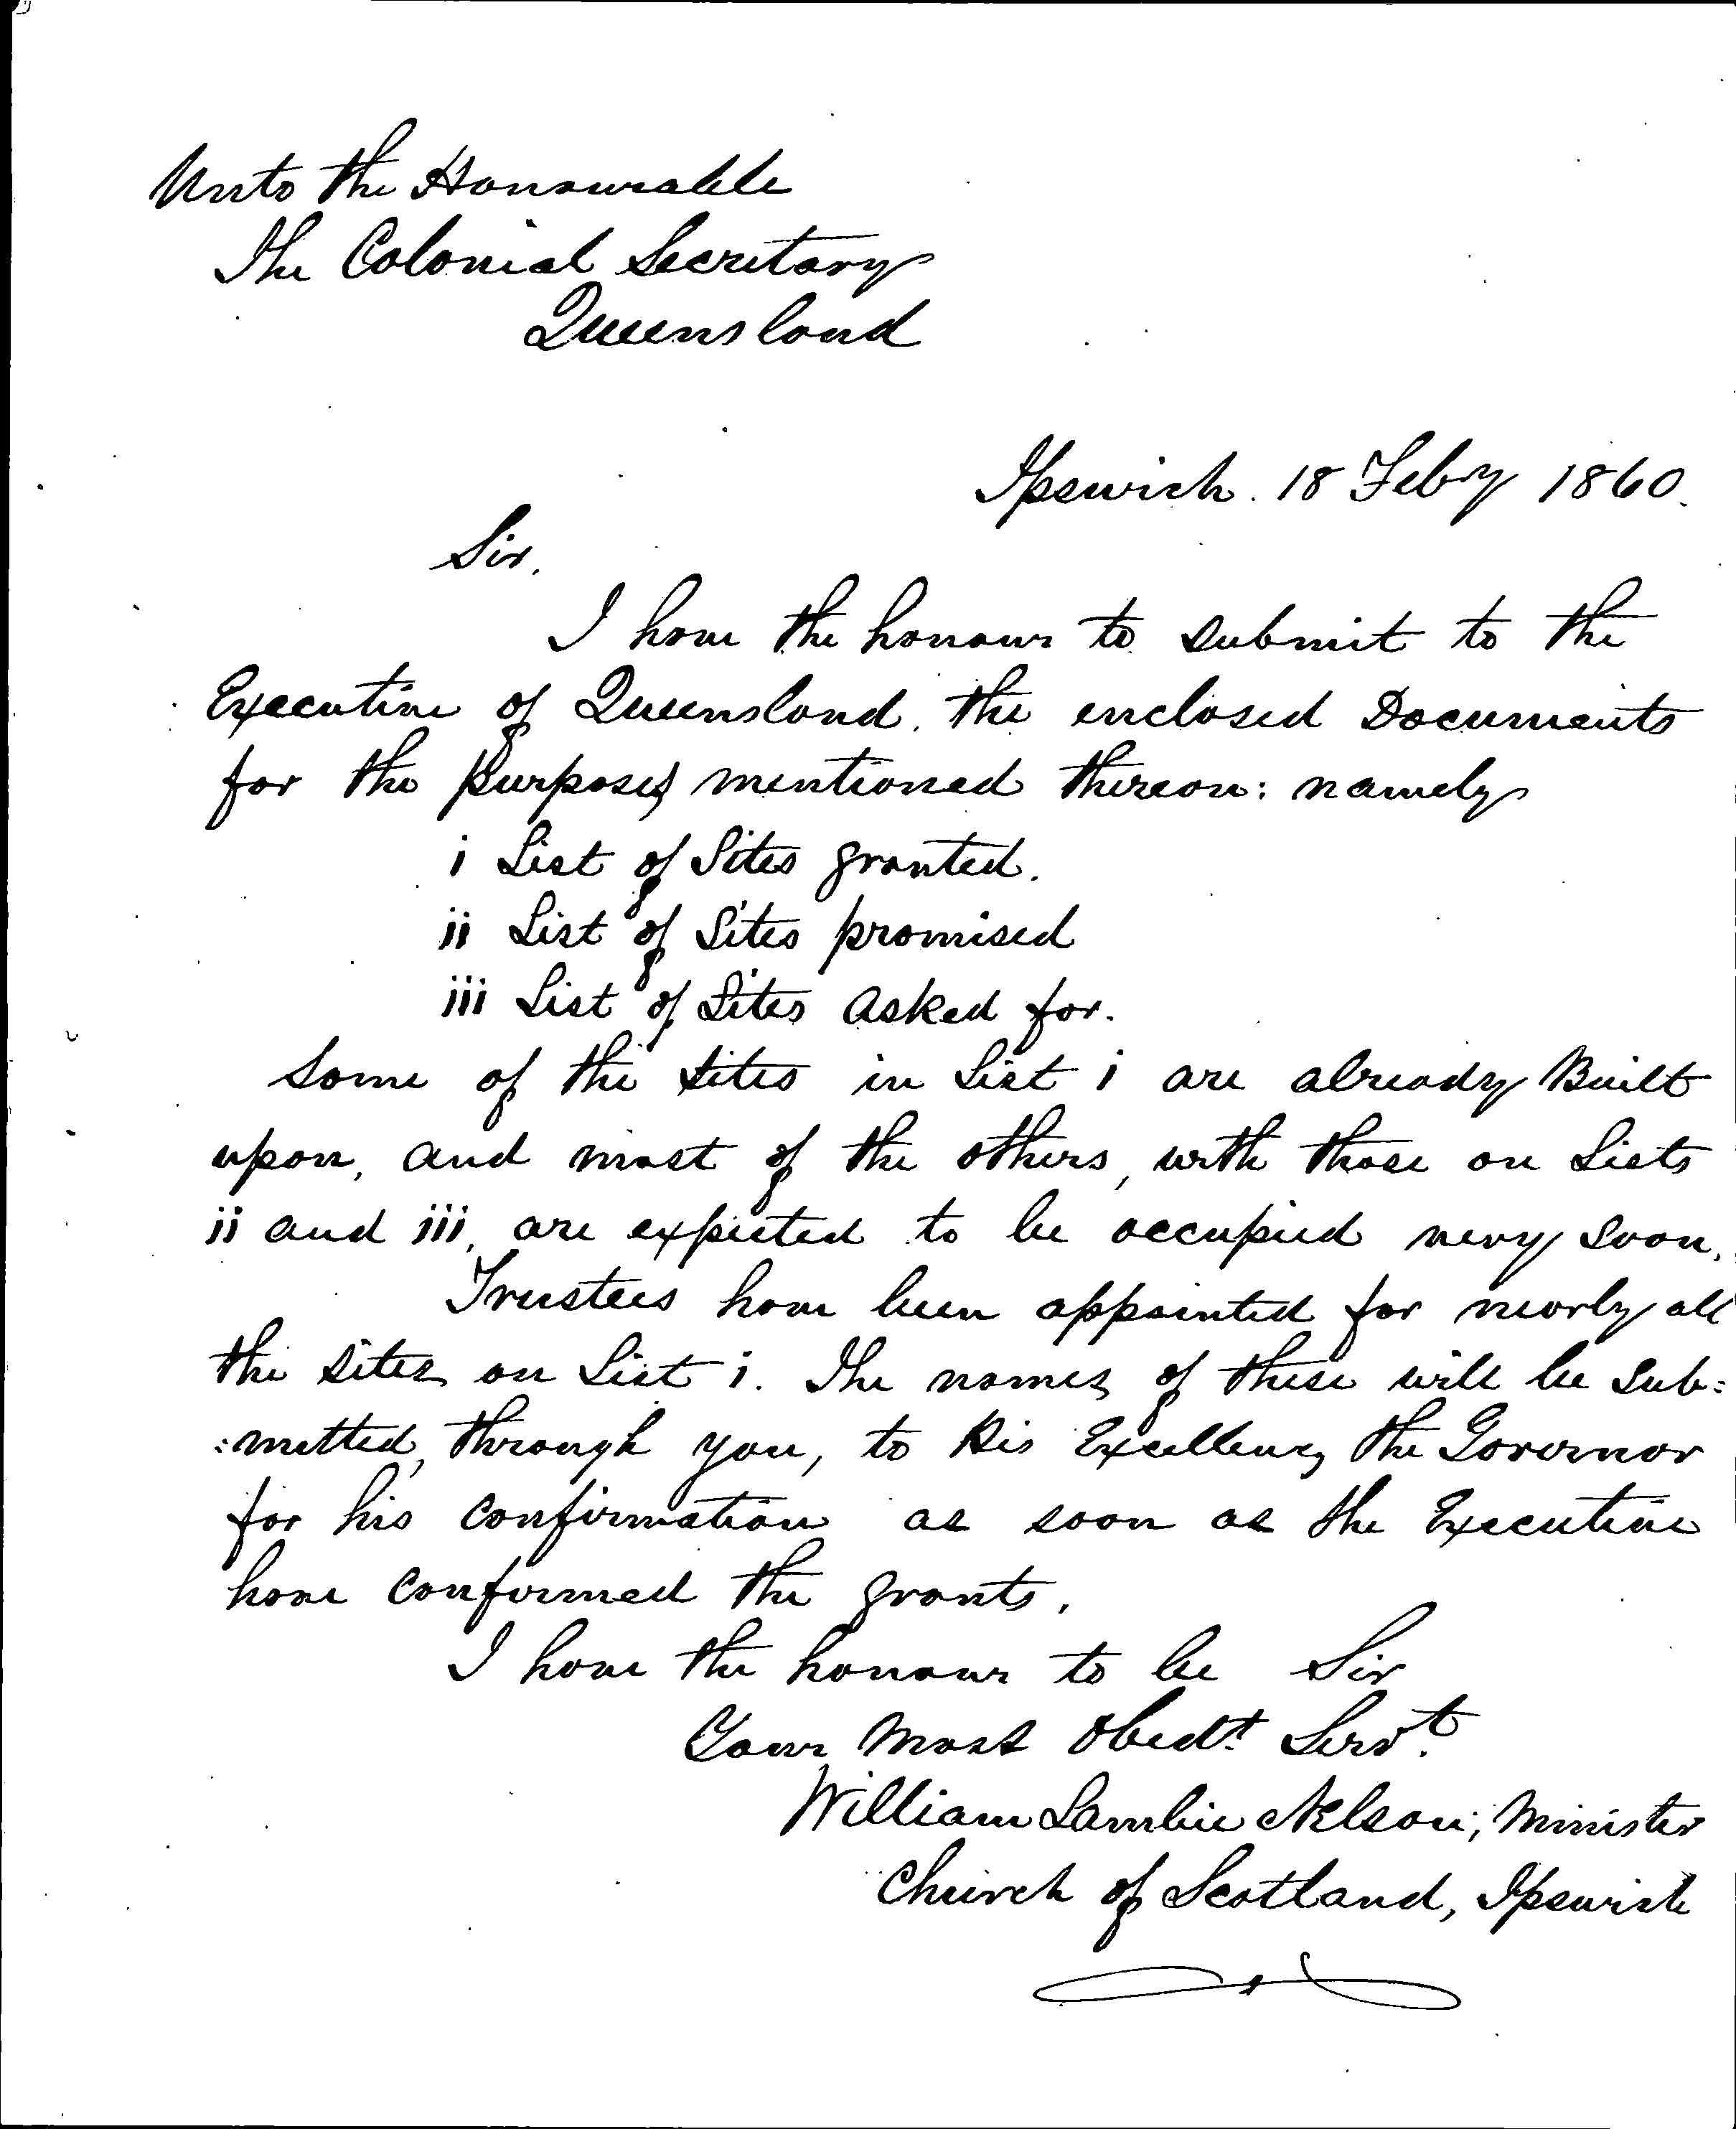 Unto the Honourable
The Colonial Secretary
Queensland
Ipswich. 18 Feby 1860.
Sir.
I have the honour to submit to the
Executive of Queensland. the enclosed Documents
for the purposes mentioned thereon: namely
i List of Sites granted.
ii List of Sites promised
iii List of Sites asked for.
Some of the sites in List i are already Built
upon, and most of the others, with those on Lists
ii and iii, are expected to be occupied very soon.
Trustees have been appointed for nearly all
the sites on List i. The names of these will be sub=
:mitted, through you, to His Excellency the Governor
for his confirmation as soon as the Executive
have confirmed the grants.
I have the honour to be Sir
Your most obedt. Servt.
William Lambie Nelson; Minister
Church of Scotland, Ipswich